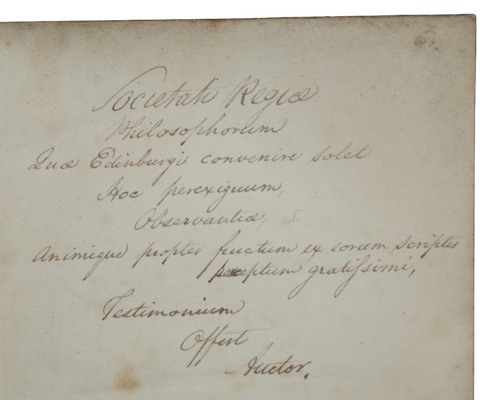 Societati Regiæ
Philosophorum
Quæ Edinburgi convenire solet
Hoc perexiguum,
Observantiæ,
Animique propter fructum ex eorum scriptis
perceptum gratissimi,
Testimonium
Offert
Auctor.